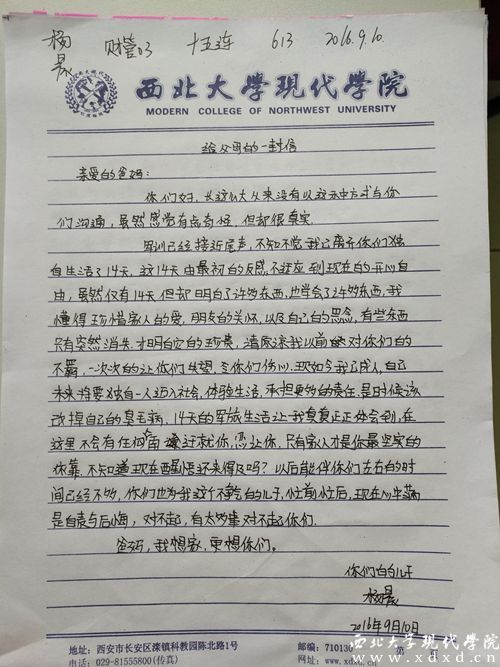 杨晨 财管03 十五连 613 2016.9.10
西北大學現代學院
MODERN COLLEGE OF NORTHWEST UNIVERSITY
给父母的一封信
亲爱的爸妈:
你们好,长这么大从来没有以这种方式与你
们沟通,虽然感觉有点奇怪,但却很真实
军训已经接近尾声,不知不觉我已离开你们独
自生活了14天,这14天由最初的反感,不适应到现在的开心自
由,虽然仅有14天但却明白了许多东西,也学会了许多东西,我
懂得珍惜家人的爱,朋友的关怀,以及自己的思念,有些东西
只有突然消失才明白它的珍贵,请原谅我以前对你们的
不羁,一次次的让你们失望,令你们伤心,现如今我已成人,自己
未来将要独自一人迈入社会,体验生活,承担更多的责任,是时候该
改掉自己的臭毛病,14天的军旅生活让我真真正正体会到,在
这里不会有任何人迁就你,恋让你,只有家人才是你最坚实的
依靠,不知道现在醒悟还来得及吗?以后能伴你们左右的时
间已经不多,你们也为我这个不孝的儿子,忙前忙后,现在心中满
是自责与后悔,对不起,有太多事对不起你们.
爸妈,我想家,更想你们。
你们的儿子
杨晨
2016年9月10日
地址:西安市长安区滦镇科教园陈北路1号
邮编:710130
电话:029-81555800(传真)
www.xd
西北大学现代学院
www.xdxd.cn